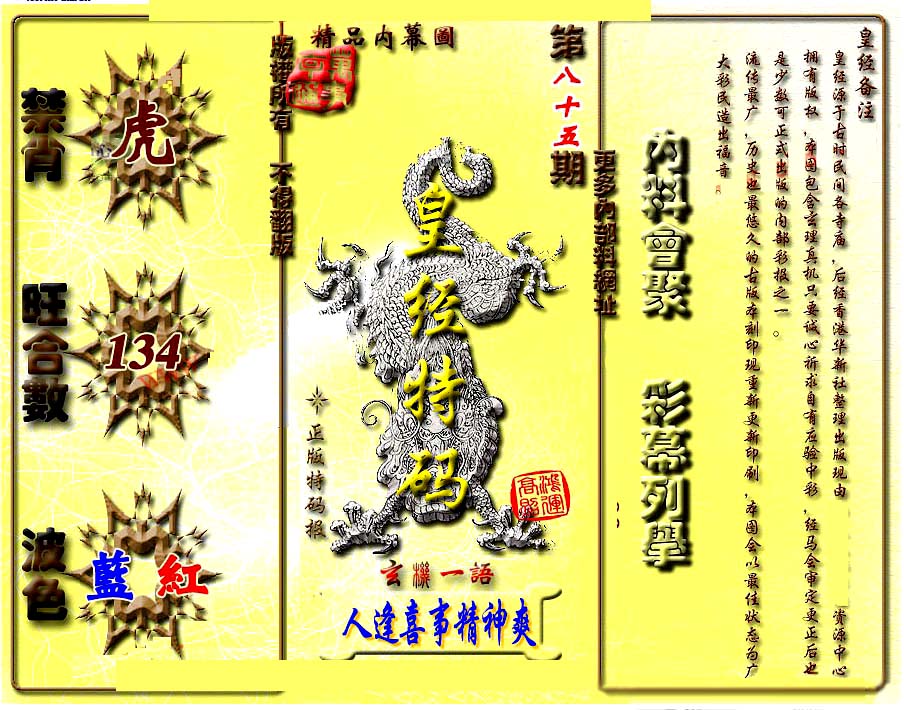 皇经备注
皇经源于古时民间各寺庙,后经香港华新社整理出版现由资源中心
拥有版权,本图包含玄理真机只要诚心祈求自有应验中彩,经马会审定更正后也
是少数可正式出版的内部彩报之一。
流传最广,历史也最悠久的古版本刻印现重新更新印刷,本图会以最佳状态为广
大彩民造出福音
内料會聚 彩幕列舉
更多内部料網址
第八十五期
精品内幕圖
皇经特码
正版特码报
鴻運
高照
玄機一語
人逢喜事精神爽
版權所有 不得翻版
禁肖
虎
旺合數
134
波色
藍 紅